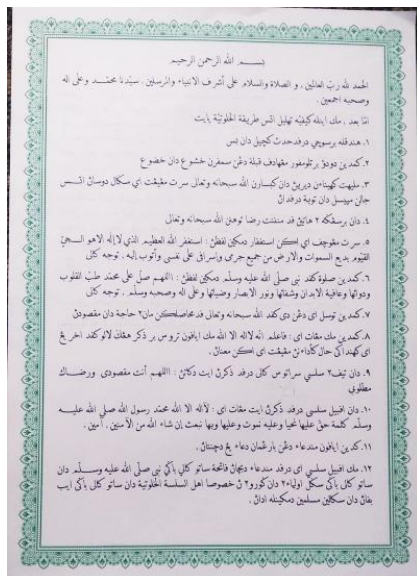 بســم الله الرحمن الرحيم
الحمد لله ربّ العالمين ، و الصلاة والسلام على أشرف الانبياء والمرسلين ، سيّدنا محمّد وعلى اله
وصحبه اجمعين .
امّا بعد ، مك اينله كيفيّه تهليل اتس طريقة الخلوتيّة يايت
١. هندقله برسوچي درفد حدث كچيل دان بسر
٢. كمدين دودق برتلومفور مڠهادف قبلة دڠن سمفرن خشوع دان خضوع
٣. مليهت كهيناءن ديرين دان كبسارن الله سبحانه وتعالى سرت مڠيقت اي سكال دوسان اتــس
جالن مپسل دان توبة درفدان
٤. دان برسڠكه ٢ هاتين فد منفتت رضا توهن الله سبحانه وتعالى
٥. سرت مڠوچف اي اكن استغفار دمكين لفظن : استغفر الله العظيم الذي لااله الا هو الــحيّ
القيّوم بديع السموات والارض من جميع جرمي واسرافي على نفسي وأتوب إليه . توجه كالي
٦. كمدين صلوة كفد نبي صلّى الله عليه وسلّم دمكين لفظن : اللهم صل على محمّد طبّ القلوب
ودوائها وعافية الابدان وشفائها ونور الابصار وضيائها وعلى اله وصحبه وسلّم . توجه كالي
٧. كمدين توسل اي دڠن دي كفد الله سبحانه وتعالى فد محاصلكن مان٢ حاجة دان مقصودن
٨. كمدين مك مڠات اي : فاعلم انه لااله الا الله مك ايافون تروس بر ذكر هڠݢ لالو كفد اخر يڠ
اي كهندا كي حال كاداءن مڠيقت اي اكن معنان .
٩. دان تيف٢ سلسي سراتوس كالي درفد ذكرن ايت دكات : اللهم أنت مقصودي ورضــاك
مطلوبي
١٠. دان افبيل سلسي درفد ذكرن ايت مڠات اي : لااله الا الله محمّد رسول الله صلى الله عليــه
وسلّم كلمة حق عليها نحيا وعليه نموت وعليها وبها نبعث إن شاء الله من الآمنين . آمين .
١١. كمدين ايافون مندعاء دڠن بارڠمان دعاء يڠ دچنتان .
١٢. مك افبيل سلسي اي درفد مندعاء دبچان فاتحة ساتو كالي باݢي نبي صلّى الله عليه وســلّم دان
ساتو كالي باݢي سكل اولياء٢ دان ݢورو٢ ن خصوصا اهل السلسة الخلوتية دان ساتو كالي باݢي ايب
بفان دان سكالين مسلمين دمكينله ادان .